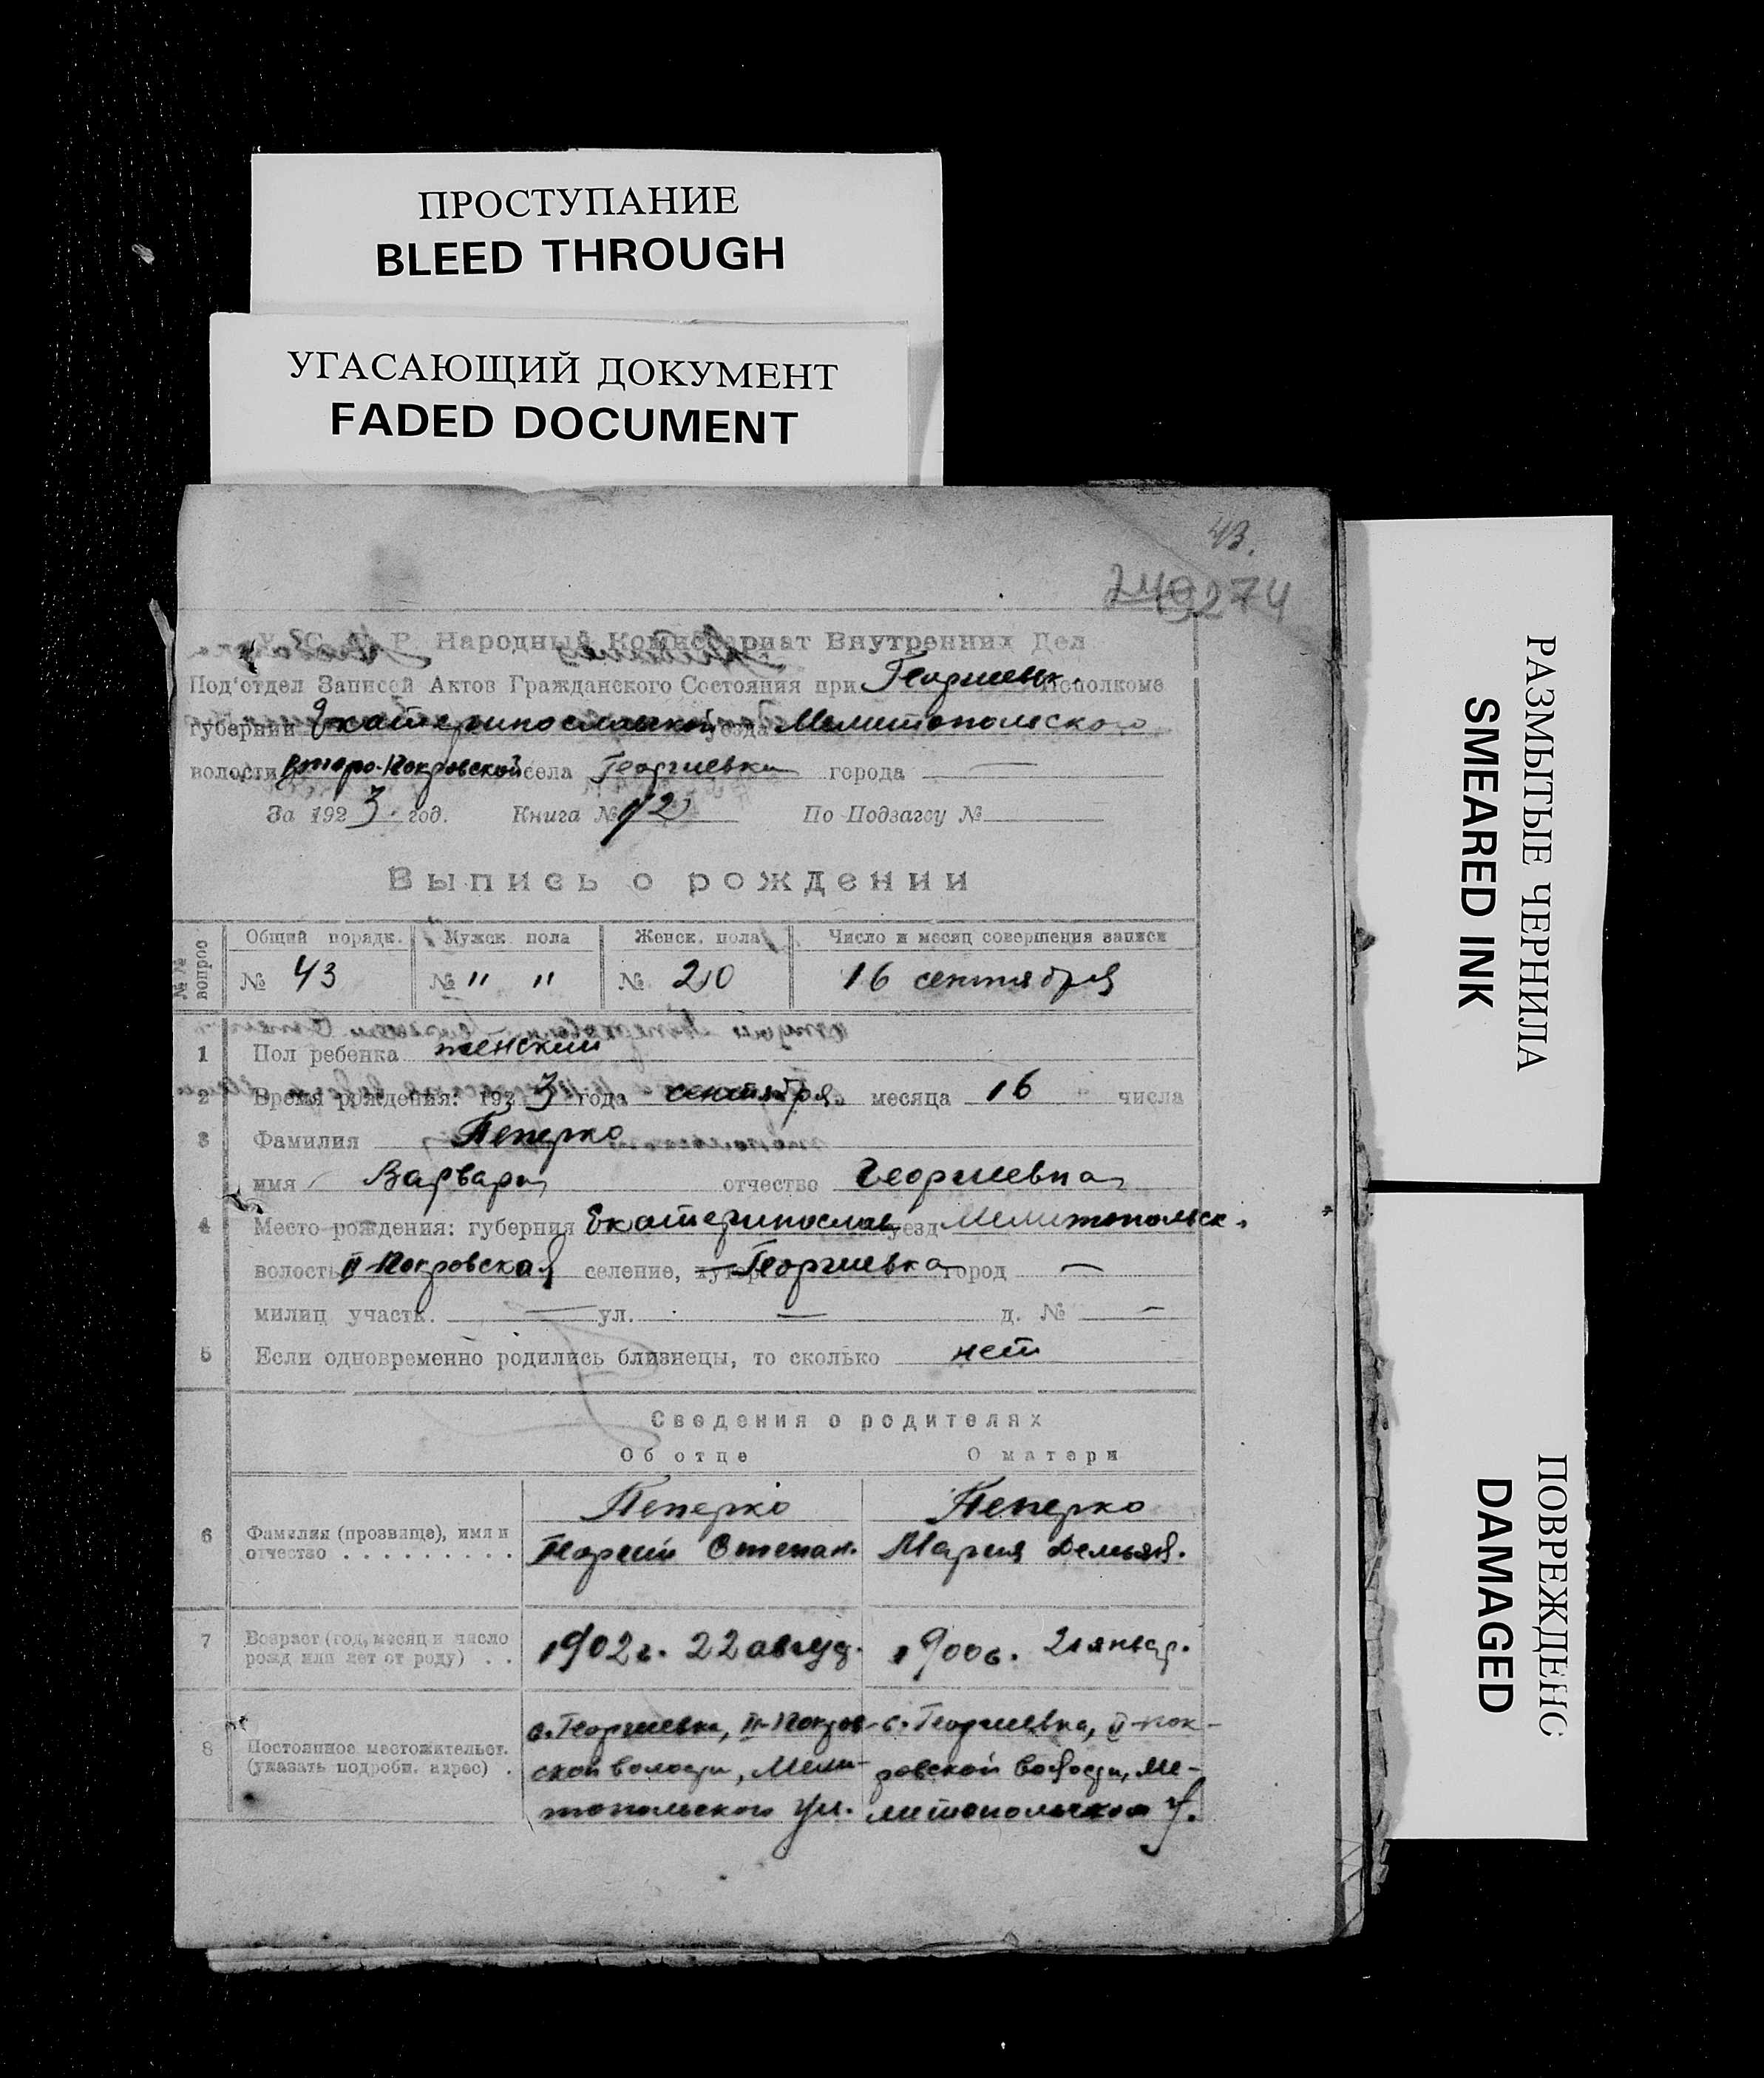 ПРОСТУПАНИЕ
BLEED THROUGH
УГАСАЮЩИЙ ДОКУМЕНТ
FADED DOCUMENT
43.
274
У. С. С. Р. Народный Комиссариат Внутренних Дел
Под'отдел Записей Актов Гражданского Состояния при Георгиевск. Исполкоме
губернии Екатеринославской уезда Мелитопольского
волости Второ-Покровской села Георгиевка города —
За 1923 год. Книга № 1/2 По Подзагсу №
Выпись о рождении
№№ вопро
Общий порядк. Мужск пола Женск. пола Число и месяц совершения записи
№ 43 № " " № 20 16 сентября
1 Пол ребенка женский
2 Время рождения: 1923 года сентября месяца 16 числа
3 Фамилия Пеперко
имя Варвара отчество Георгиевна
4 Место рождения: губерния Екатеринослав уезд Мелитопольск.
волость II-Покровская селение, хутор Георгиевка город —
милиц участк. — ул. — д. № —
5 Если одновременно родились близнецы, то сколько нет
Сведения о родителях
Об отце О матери
6 Фамилия (прозвище), имя и отчество . . . . . . . . .
Пеперко
Георгий Степан.
Пеперко
Мария Демьян.
7 Возраст (год, месяц и число рожд или лет от роду) . .
1902 г. 22 авгус.
1900 г. 21 январ.
8 Постоянное местожительст. (указать подробн. адрес) .
с. Георгиевка, II-Покров-
ской волости, Мели-
топольского
с. Георгиевка, II-Пок-
ровской волости, Ме-
литопольского у.
РАЗМЫТЫЕ ЧЕРНИЛА
SMEARED INK
ПОВРЕЖДЕНО
DAMAGED